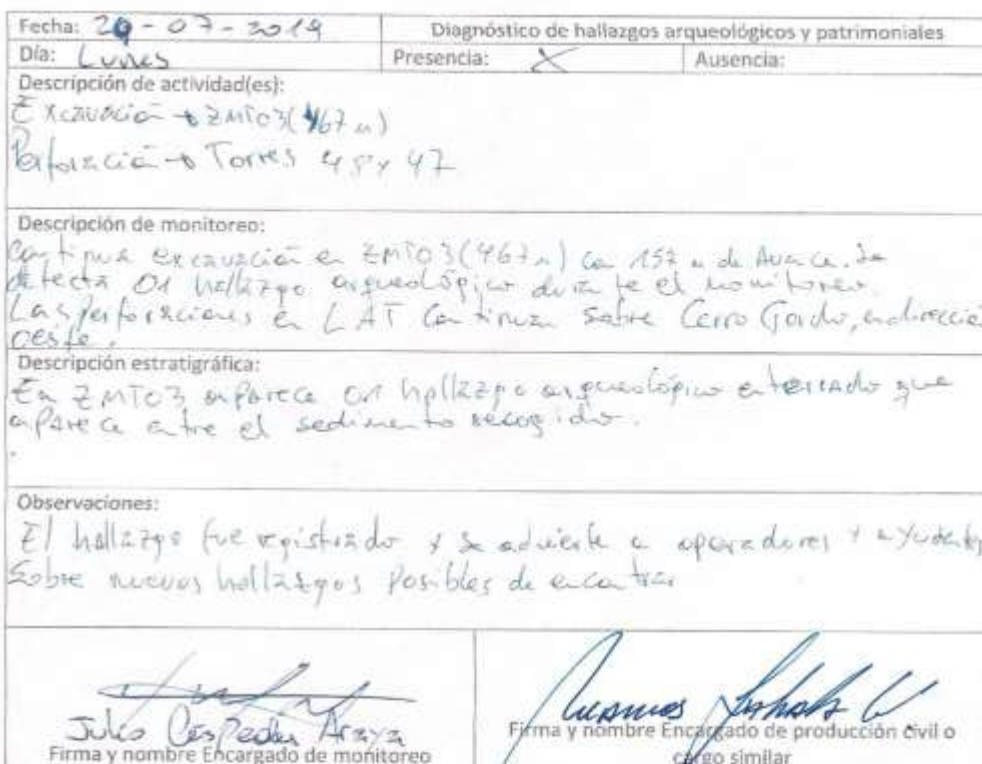 Fecha: 29-07-2019 Diagnóstico de hallazgos arqueológicos y patrimoniales
Día: Lunes Presencia: X Ausencia:
Descripción de actividad(es):
Excavación → ZMT03 (467 m)
Perforación → Torres 45 y 47
Descripción de monitoreo:
Continua excavación en ZMT03 (467 m) con 157 m de Avance. Se
detecta 01 hallazgo arqueológico durante el monitoreo.
Las perforaciones en LAT Continuan sobre Cerro Gordo, en dirección
oeste.
Descripción estratigráfica:
En ZMT03 aparece 01 hallazgo arqueológico enterrado que
aparece entre el sedimento recogido.
Observaciones:
El hallazgo fue registrado y se advierte a operadores y ayudantes
Sobre nuevos hallazgos Posibles de encontrar
Julio Céspedes Araya
Firma y nombre Encargado de monitoreo
Firma y nombre Encargado de producción civil o
cargo similar